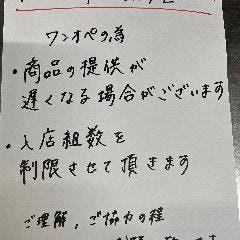 ワンオペの為
・商品の提供が
遅くなる場合がございます
・入店組数を
制限させて頂きます
ご理解、ご協力の程